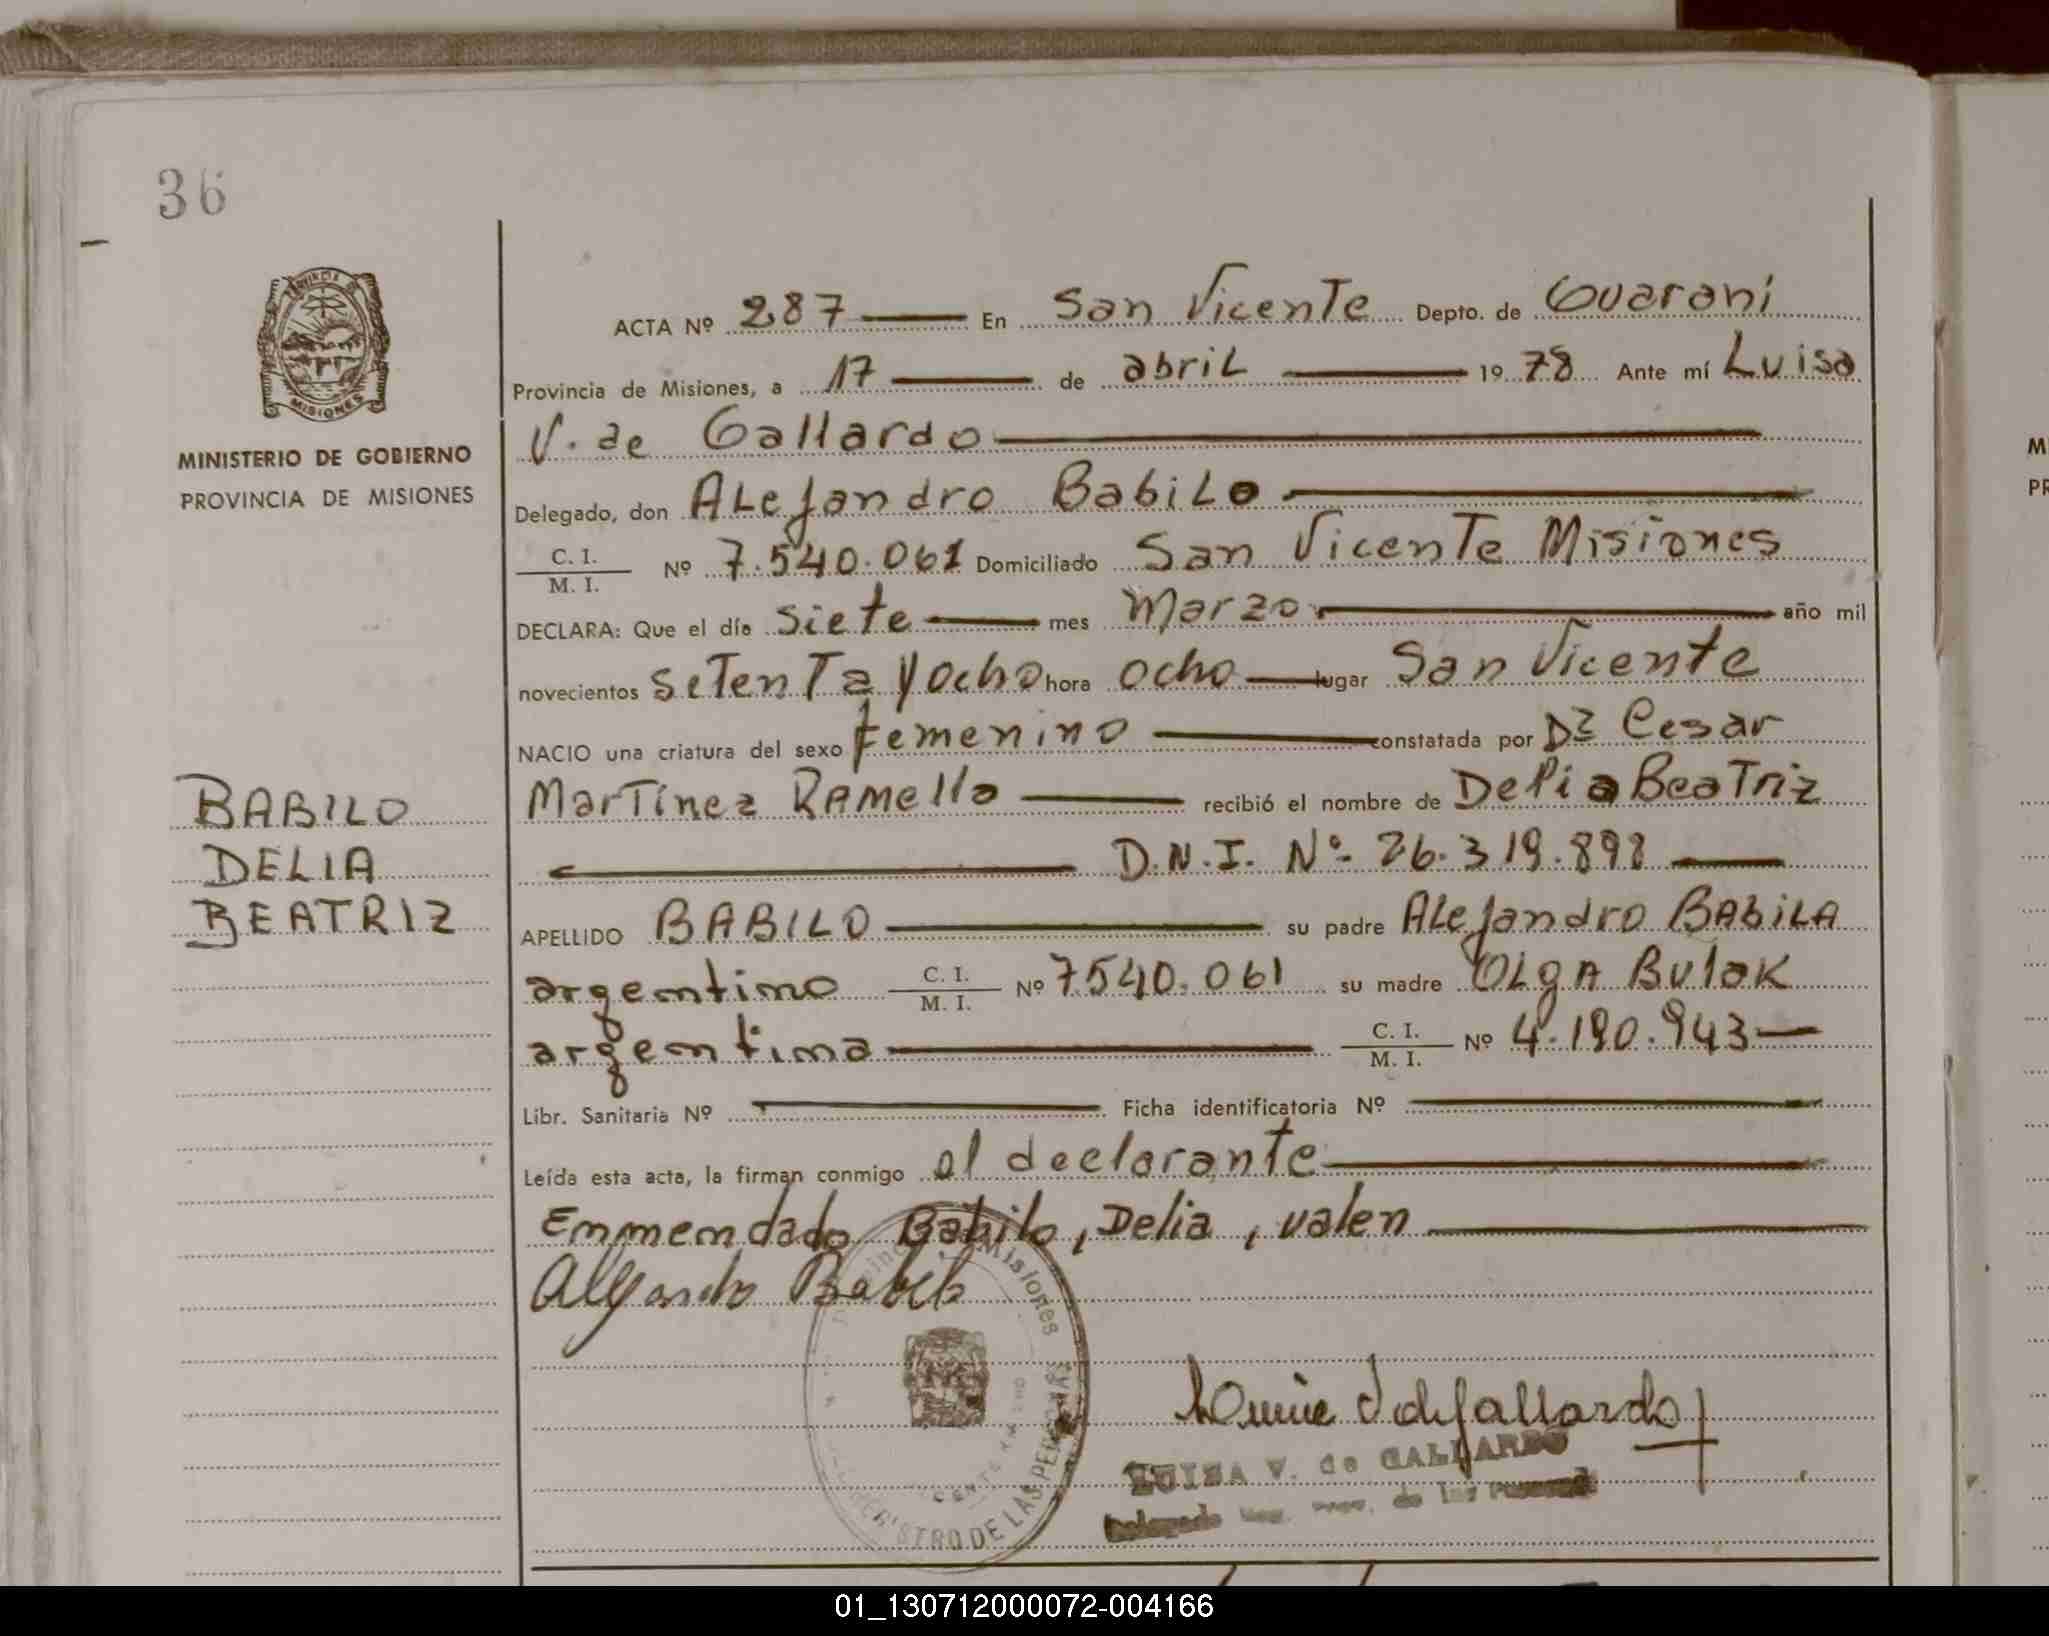 36
MISIONES
MINISTERIO DE GOBIERNO
PROVINCIA DE MISIONES
ACTA Nº 287 En San Vicente Depto. de Guarani
Provincia de Misiones, a 17 de abril 1978 Ante mí Luisa
V. de Gallardo
Delegado, don Alejandro Babilo
C. I.
M. I. Nº 7.540.061 Domiciliado San Vicente Misiones
DECLARA: Que el día siete mes Marzo año mil
novecientos setenta y ocho hora ocho lugar San Vicente
NACIO una criatura del sexo femenino constatada por Dr Cesar
BABILO
DELIA
BEATRIZ
Martínez Ramella recibió el nombre de Delia Beatriz
D.N.I. Nº 26.319.898
APELLIDO BABILO su padre Alejandro Babila
argentino C. I.
M. I. Nº 7540.061 su madre Olga Bulak
argentina C. I.
M. I. Nº 4.190.943
Libr. Sanitaria Nº Ficha identificatoria Nº
Leída esta acta, la firman conmigo el declarante
Emmendado Babilo, Delia, valen
Alejandro Babilo
Misiones
REGISTRO DE LAS PERSONAS
LUISA V. de GALLARDO
Delegado de las
01_130712000072-004166